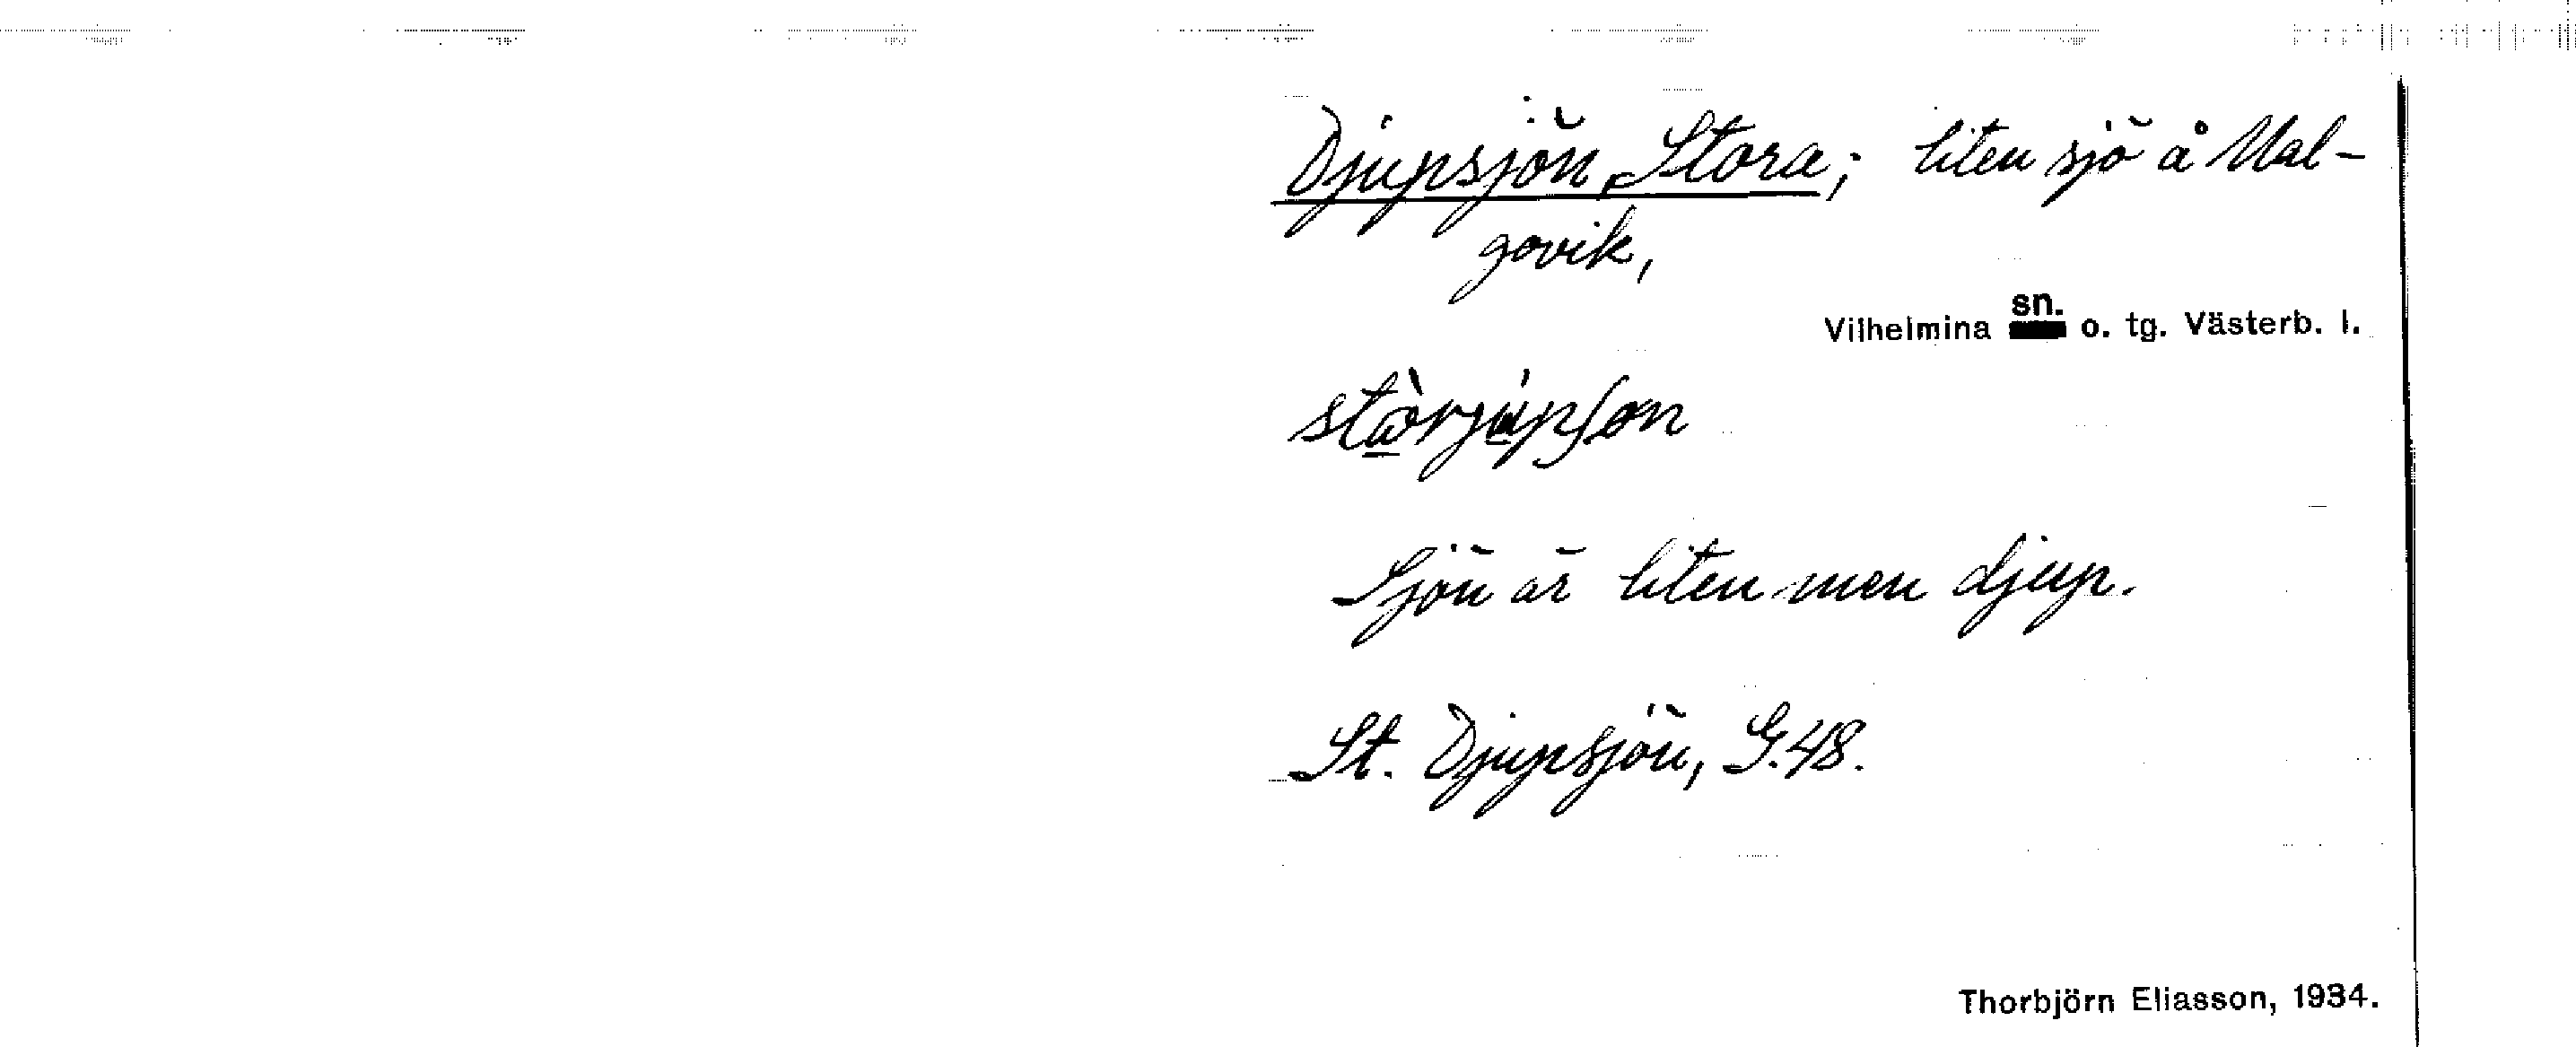 Djupsjön, Stora; liten sjö å Mal-
govik,
Vilhelmina sn. o. tg. Västerb. l.
Sjön är liten men djup.
St. Djupsjön, G.48.
Thorbjörn Eliasson, 1934.